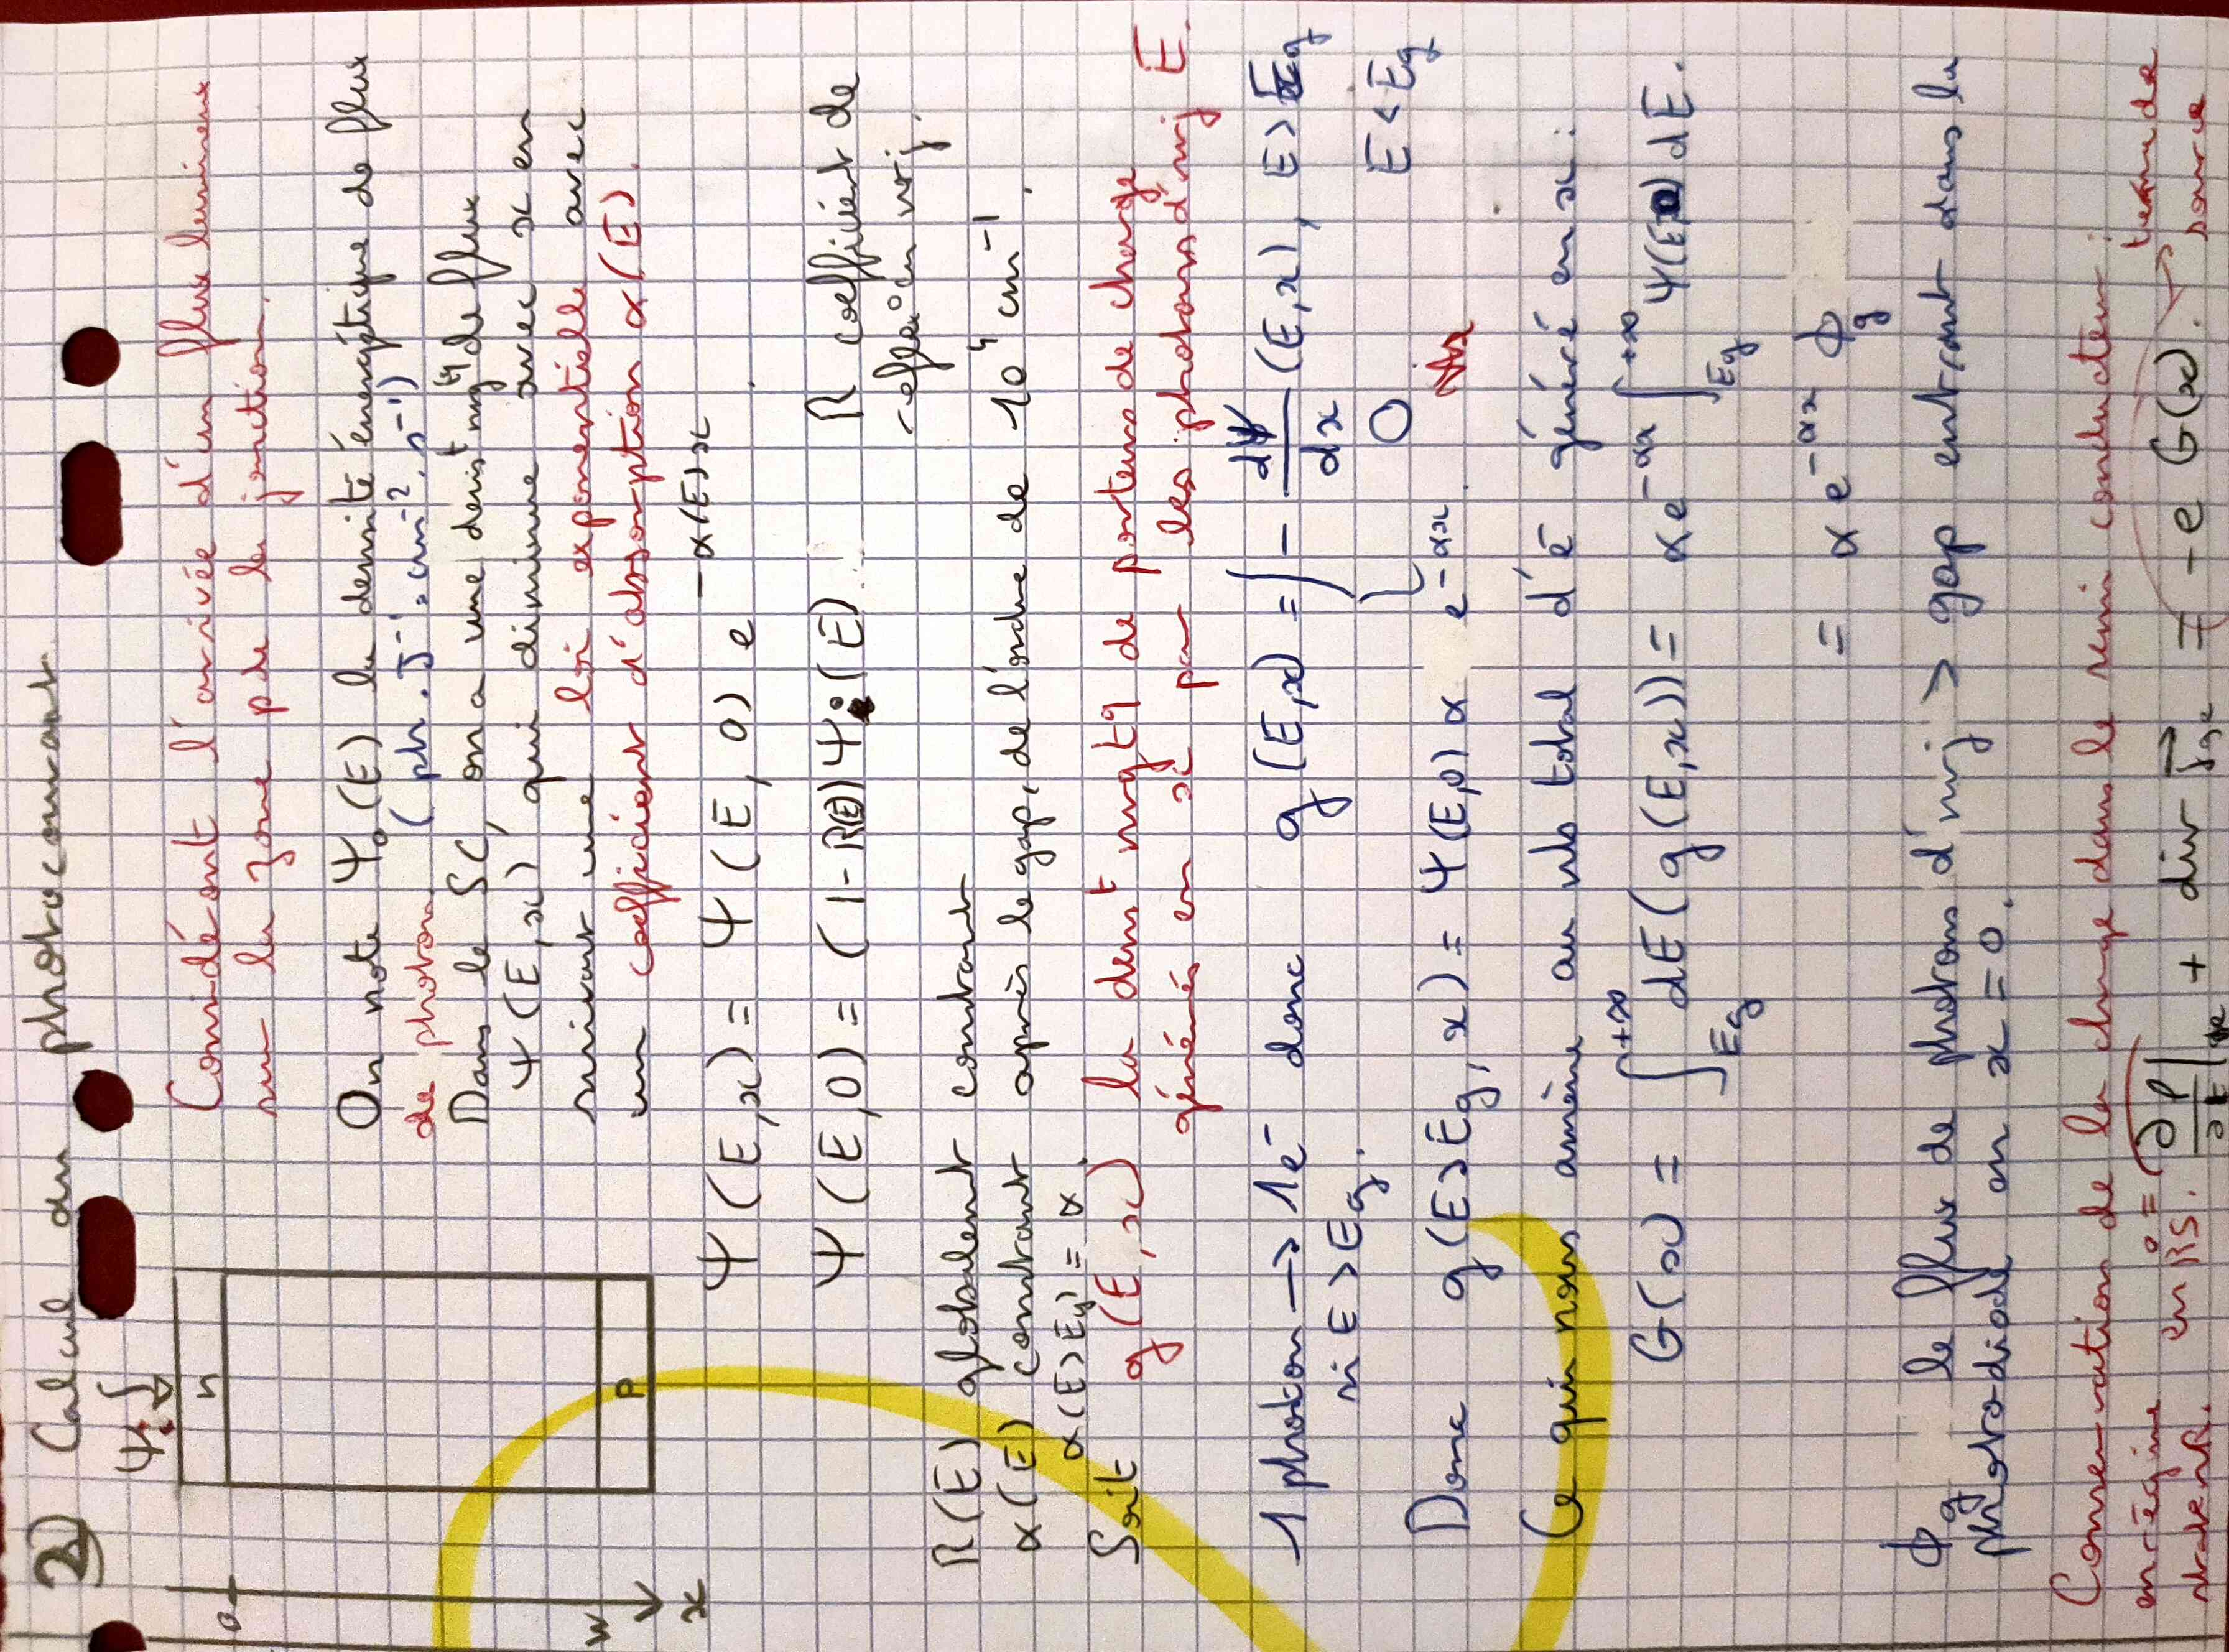 2) Calcul du photocourant
Ψ
n
p
0
W
x
Considéront l'arrivée d'un flux lumineux
sur la zone p de la jonction.
On note Ψ₀(E) la densité énergétique de flux
de photon. (ph. J⁻¹. cm⁻². s⁻¹)
Dans le SC, on a une densᵗ nrgtq de flux
Ψ(E,x), qui diminue avec x en
suivant une loi exponentielle avec
un coefficient d'absorption α(E).
Ψ(E,x) = Ψ(E,0) e^{-α(E)x}
Ψ(E,0) = (1-R(E)) Ψ₀(E). R coefficient de
reflex° en nrj.
R(E) globalement constant
α(E) constant après le gap, de l'ordre de 10⁴ cm⁻¹.
α(E>Eg) = α.
Soit g(E,x) la densᵗ nrgtq de porteurs de charge
générés en x par les photons d'nrj E.
1 photon → 1e⁻ donc g(E,x) = { - dΨ/dx (E,x), E>Eg
si E>Eg. 0 E<Eg
Donc g(E>Eg, x) = Ψ(E,0) α e^{-αx}.
Ce qui nous amène au nb total d'e⁻ généré en x:
G(x) = ∫_{Eg}^{+∞} dE (g(E,x)) = αe^{-αx} ∫_{Eg}^{+∞} Ψ(E,0) dE.
= α e^{-αx} ϕg
ϕg le flux de photons d'nrj > gap entrant dans la
photodiode en x=0.
Conservation de la charge dans le semi conducteur:
en régime en RS. 0 = ∂ρ/∂t + div = - e G(x). → terme de
source